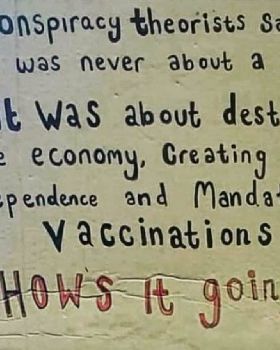 onspiracy theorists Sa
was never about a
t Was about dest
e economy, Creating
pendence and Manda
Vaccinations
HOW'S It goin